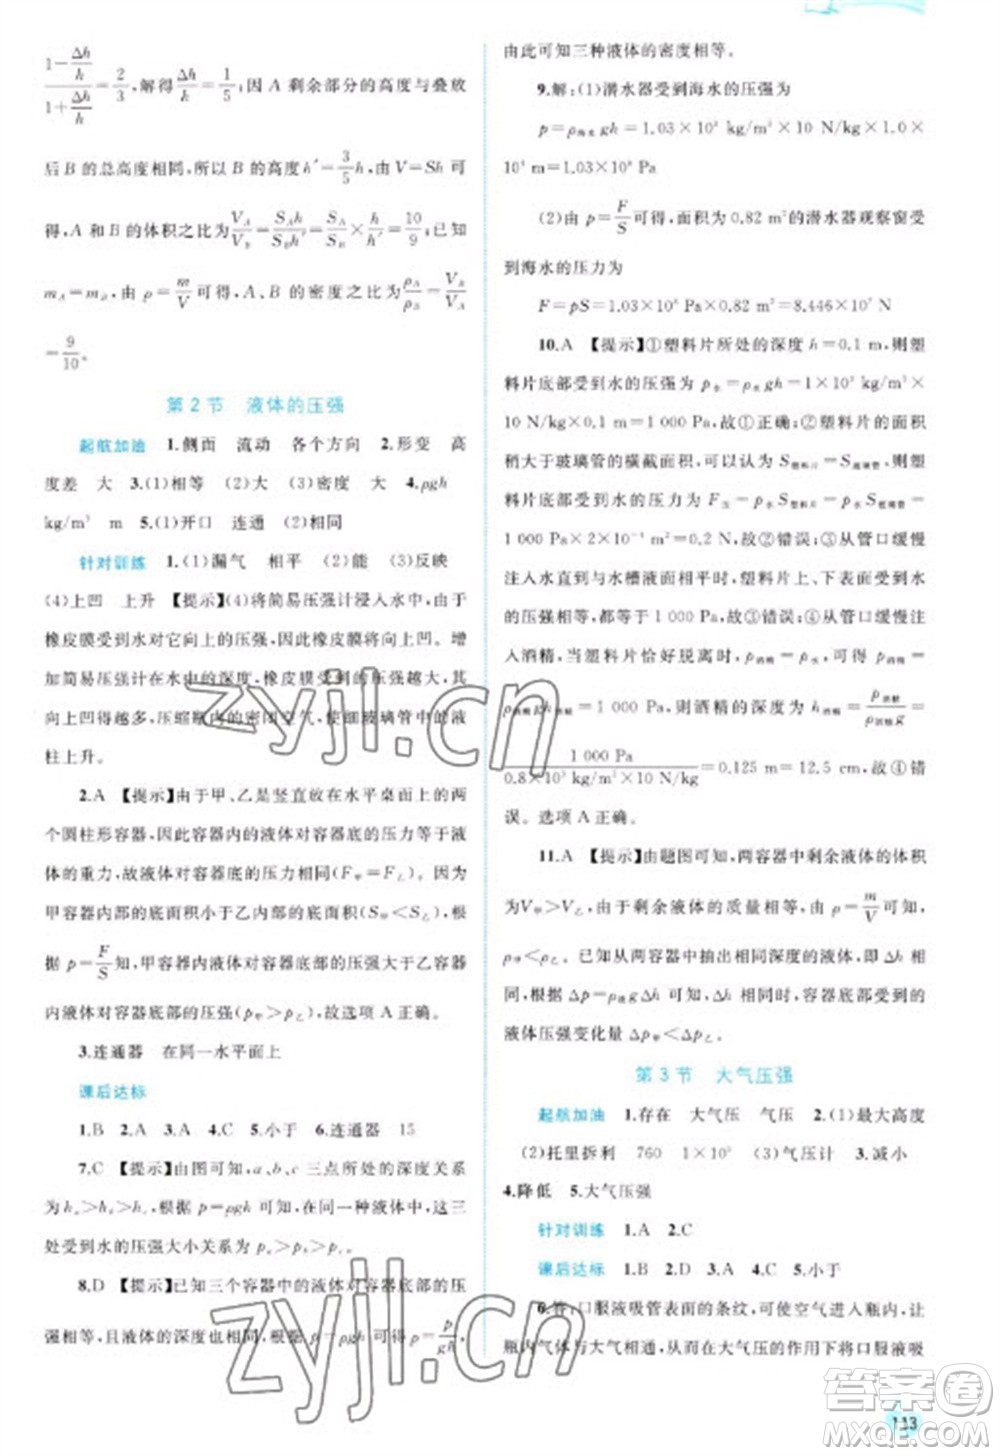 1-Δh/h
───── = 2/3,解得Δh/h=1/5;因 A 剩余部分的高度与叠放
1+Δh/h
后 B 的总高度相同,所以 B 的高度h′=3/5h;由 V=Sh 可
得,A 和 B 的体积之比为V_A/V_B=S_Ah/S_Bh′=S_A/S_B×h/h′=10/9;已知
m_A=m_B,由 ρ=m/V可得,A、B 的密度之比为ρ_A/ρ_B=V_B/V_A
=9/10。
第 2 节 液体的压强
起航加油 1.侧面 流动 各个方向 2.形变 高
度差 大 3.(1)相等 (2)大 (3)密度 大 4.ρgh
kg/m³ m 5.(1)开口 连通 (2)相同
针对训练 1.(1)漏气 相平 (2)能 (3)反映
(4)上凹 上升 【提示】(4)将简易压强计浸入水中,由于
橡皮膜受到水对它向上的压强,因此橡皮膜向上凹。增
加简易压强计在水中的深度,橡皮膜受到的压强越大,其
向上凹得越多,压缩瓶内的密闭空气,使细玻璃管中的液
柱上升。
2.A 【提示】由于甲、乙是竖直放在水平桌面上的两
个圆柱形容器,因此容器内的液体对容器底的压力等于液
体的重力,故液体对容器底的压力相同(F甲=F乙)。因
甲容器内部的底面积小于乙内部的底面积(S甲<S乙),根
据 p=F/S知,甲容器内液体对容器底部的压强大于乙容器
内液体对容器底部的压强(p甲>p乙),故选项 A 正确。
3.连通器 在同一水平面上
课后达标
1.B 2.A 3.A 4.C 5.小于 6.连通器 15
7.C 【提示】由图可知,a、b、c 三点所处的深度关系
为 >h_c,根据 p=ρgh 可知,在同一种液体中,这三
处受到水的压强大小关系为
8.D 【提示】已知三个容器中的液体对容器底部的压
强相等,且液体的深度也相同,根据 p=ρgh 可得 ρ=p/gh,
由此可知三种液体的密度相等。
9.解:(1)潜水器受到海水的压强为
p=ρ海水gh=1.03×10³ kg/m³×10 N/kg×1.0×
10⁴ m=1.03×10⁸ Pa
(2)由 p=F/S可得,面积为 0.82 m²的潜水器观察窗受
到海水的压力为
F=pS=1.03×10⁸ Pa×0.82 m²=8.446×10⁷ N
10.A 【提示】①塑料片所处的深度 h=0.1 m,则塑
料片底部受到水的压强为 p水=ρ水gh=1×10³ kg/m³×
10 N/kg×0.1 m=1 000 Pa,故①正确;②塑料片的面积
稍大于玻璃管的横截面积,可认为 S塑料片=S玻璃管,所以塑
料片底部受到水的压力为 F压=p水S塑料片=p水S玻璃管=
1 000 Pa×2×10⁻⁴ m²=0.2 N,故②错误;③从管口缓慢
注入水直到与水槽液面相平时,塑料片上、下表面受到水
的压强相等,都等于 1 000 Pa,故③错误;④从管口缓慢注
入酒精,当塑料片恰好脱离时,p酒精=p水,可得 p酒精=
ρ酒精gh酒精=1 000 Pa,则酒精的深度为 h酒精=p酒精/ρ酒精g=
1 000 Pa/(0.8×10³ kg/m³×10 N/kg)=0.125 m=12.5 cm,故④错
误。选项 A 正确。
11.A 【提示】由题图可知,两容器中剩余液体的体积
为V甲>V乙,由于剩余液体的质量相等,由 ρ=m/V可知,
ρ甲<ρ乙,在两容器中抽出相同深度的液体,即 Δh 相
同,根据 Δp=ρ液gΔh 可知,Δh 相同时,容器底部受到的
液体压强变化量 Δp甲<Δp乙。
第 3 节 大气压强
起航加油 1.存在 大气压 气压 2.(1)最大高度
(2)托里拆利 760 1×10⁵ (3)气压计 3.减小
4.降低 5.大气压强
针对训练 1.A 2.C
课后达标 1.B 2.D 3.A 4.C 5.小于
6.答:口服液吸管表面的条纹,可使空气进入瓶内,使
瓶内气体与大气相通,从而在大气压的作用下将口服液吸
113
zyjl.cn
zyjl.cn
答案圈
MXQE.COM